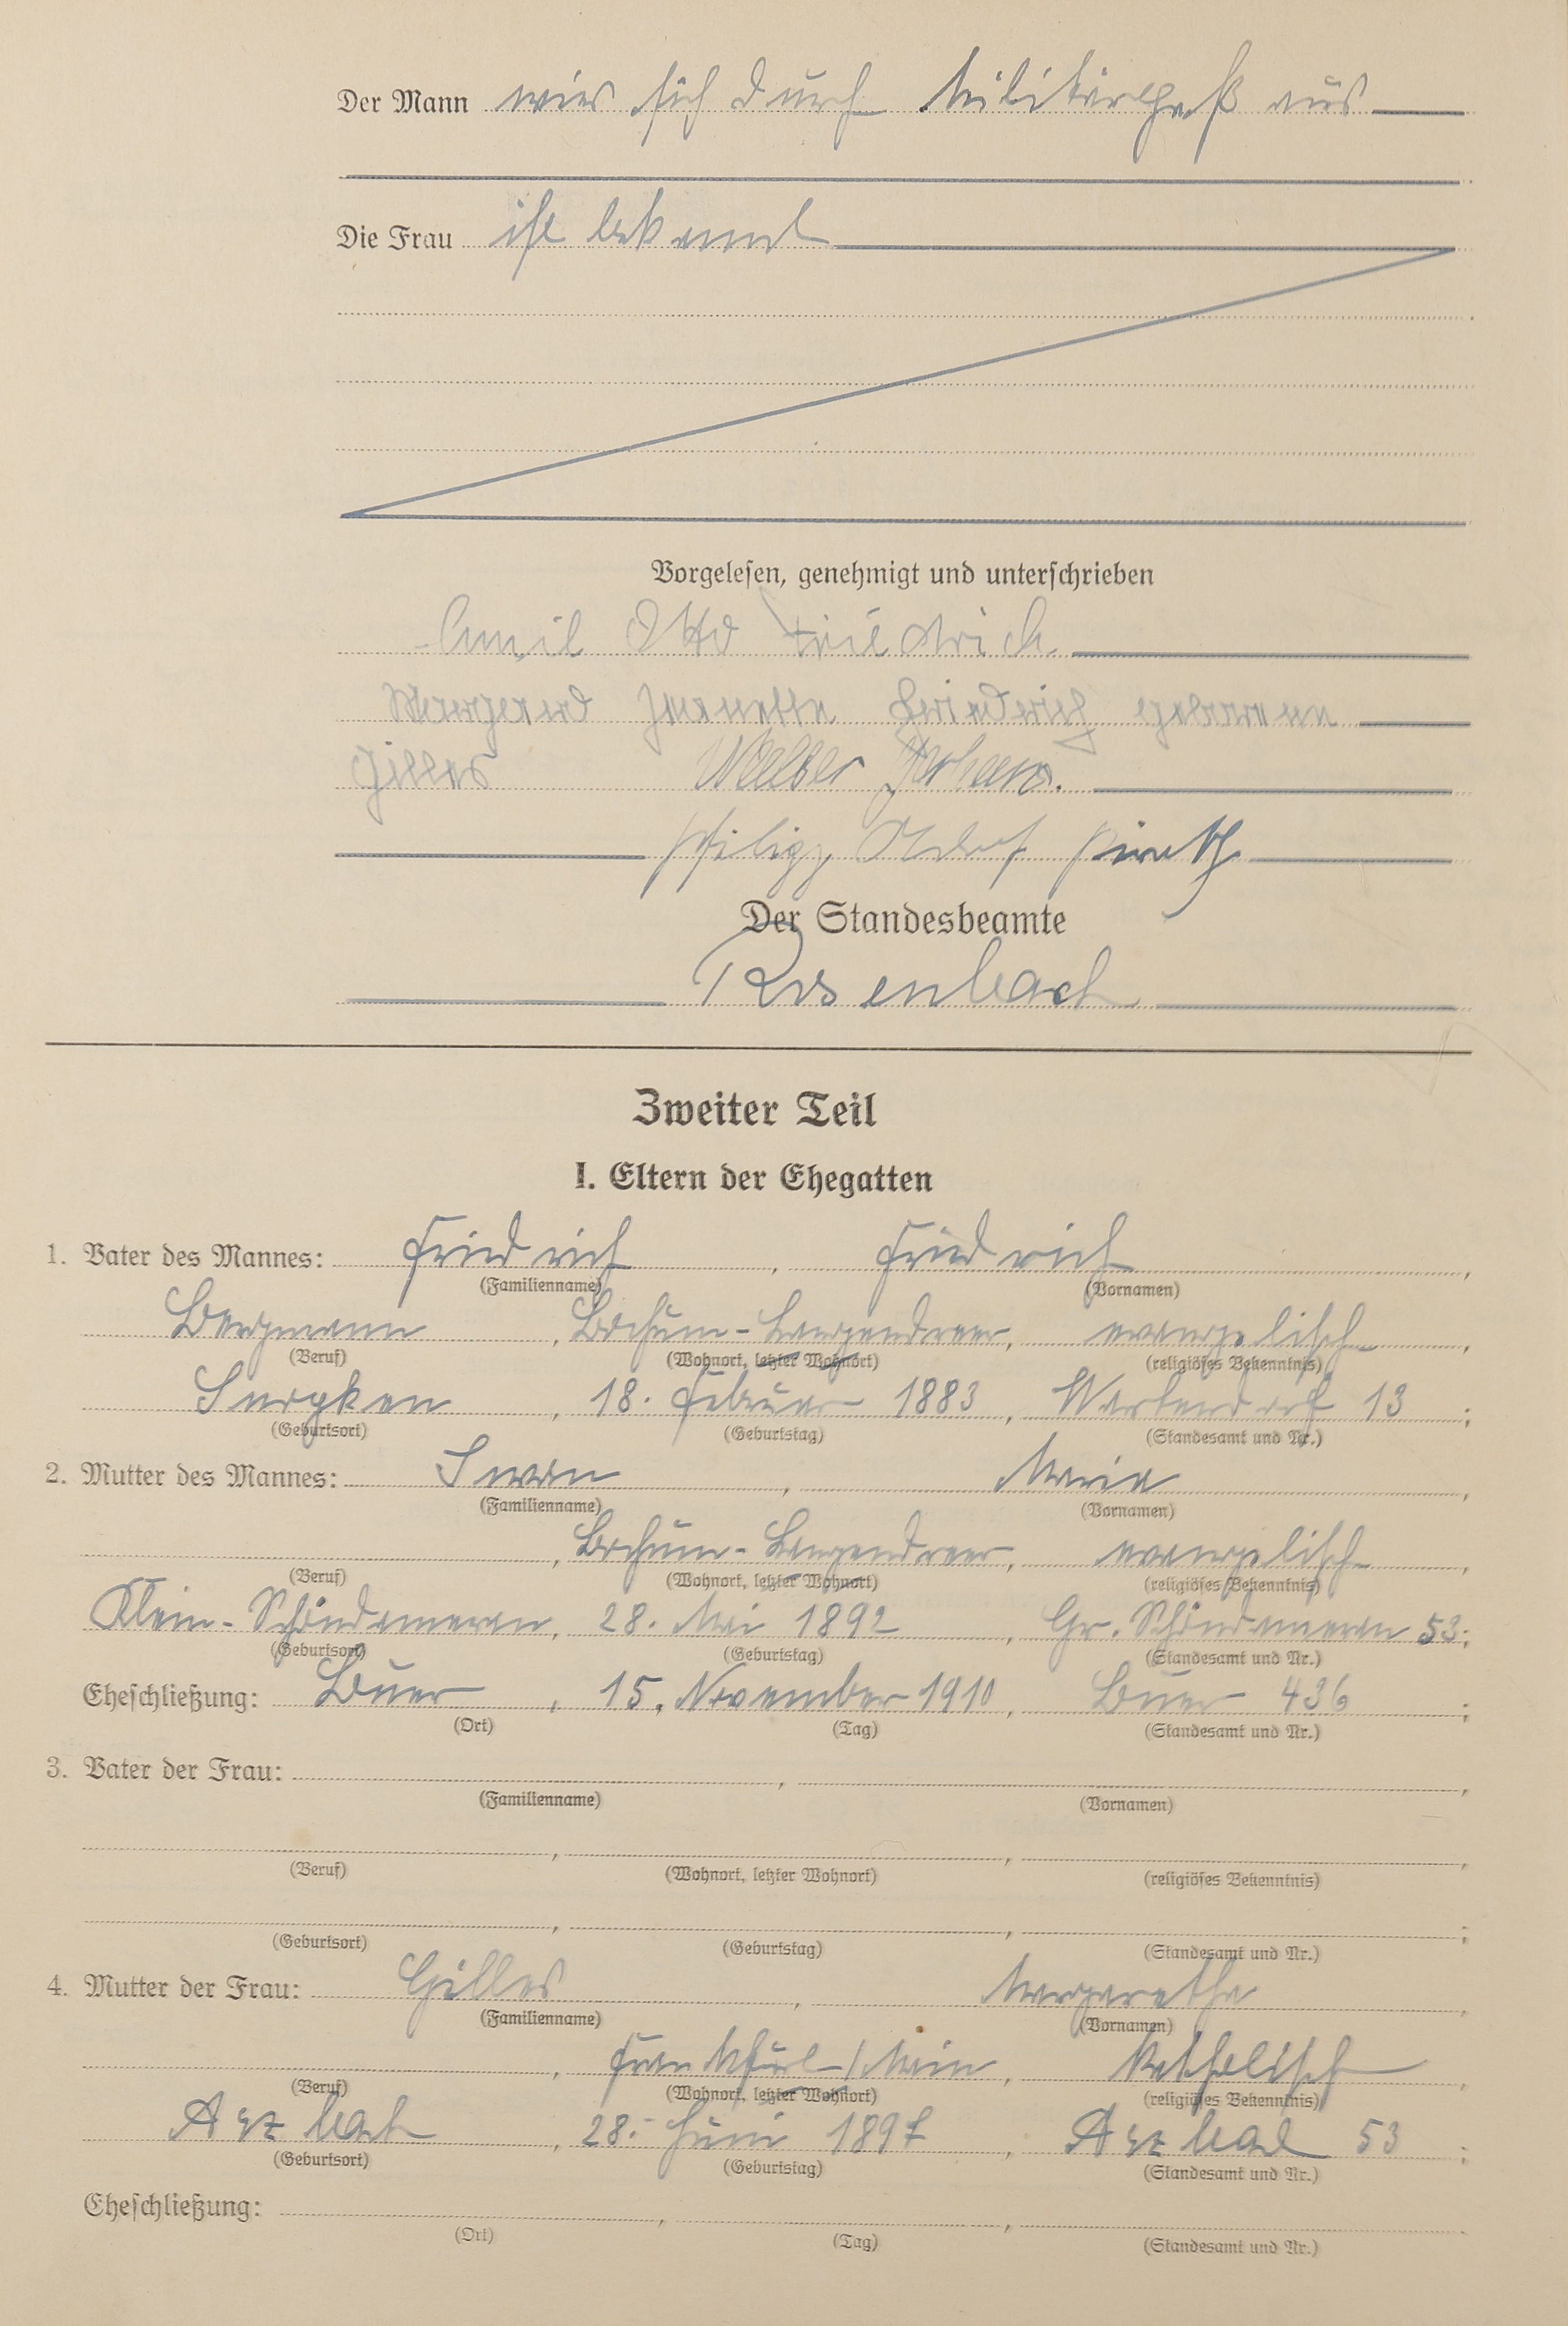 Der Mann wies sich durch Militärpaß aus
Die Frau ist bekannt
Vorgelesen, genehmigt und unterschrieben
Emil Otto Friedrich
Irmgard Jeanette Friedrich geborenen
Gilles Walter
Philipp Adolf Pirath
Der Standesbeamte
Rosenbach
Zweiter Teil
I. Eltern der Ehegatten
1. Vater des Mannes: Friedrich, Friedrich,
(Familienname) (Vornamen)
Bergmann, Bochum-Langendreer, evangelisch,
(Beruf) (Wohnort, letzter Wohnort) (religiöses Bekenntnis)
Surgken, 18. Februar 1883, 13;
(Geburtsort) (Geburtstag) (Standesamt und Nr.)
2. Mutter des Mannes: Swan, Maria,
(Familienname) (Vornamen)
, Bochum-Langendreer, evangelisch,
(Beruf) (Wohnort, letzter Wohnort) (religiöses Bekenntnis)
Klein-Schöndameran, 28. Mai 1892, Gr. Schöndameran 53;
(Geburtsort) (Geburtstag) (Standesamt und Nr.)
Eheschließung: Buer, 15. November 1910, Buer 436;
(Ort) (Tag) (Standesamt und Nr.)
3. Vater der Frau: , ,
(Familienname) (Vornamen)
, , ,
(Beruf) (Wohnort, letzter Wohnort) (religiöses Bekenntnis)
, , ;
(Geburtsort) (Geburtstag) (Standesamt und Nr.)
4. Mutter der Frau: Gilles, Margaretha,
(Familienname) (Vornamen)
, Frankfurt/Main, katholisch,
(Beruf) (Wohnort, letzter Wohnort) (religiöses Bekenntnis)
Arzbach, 28. Juni 1897, Arzbach 53;
(Geburtsort) (Geburtstag) (Standesamt und Nr.)
Eheschließung: , ,
(Ort) (Tag) (Standesamt und Nr.)